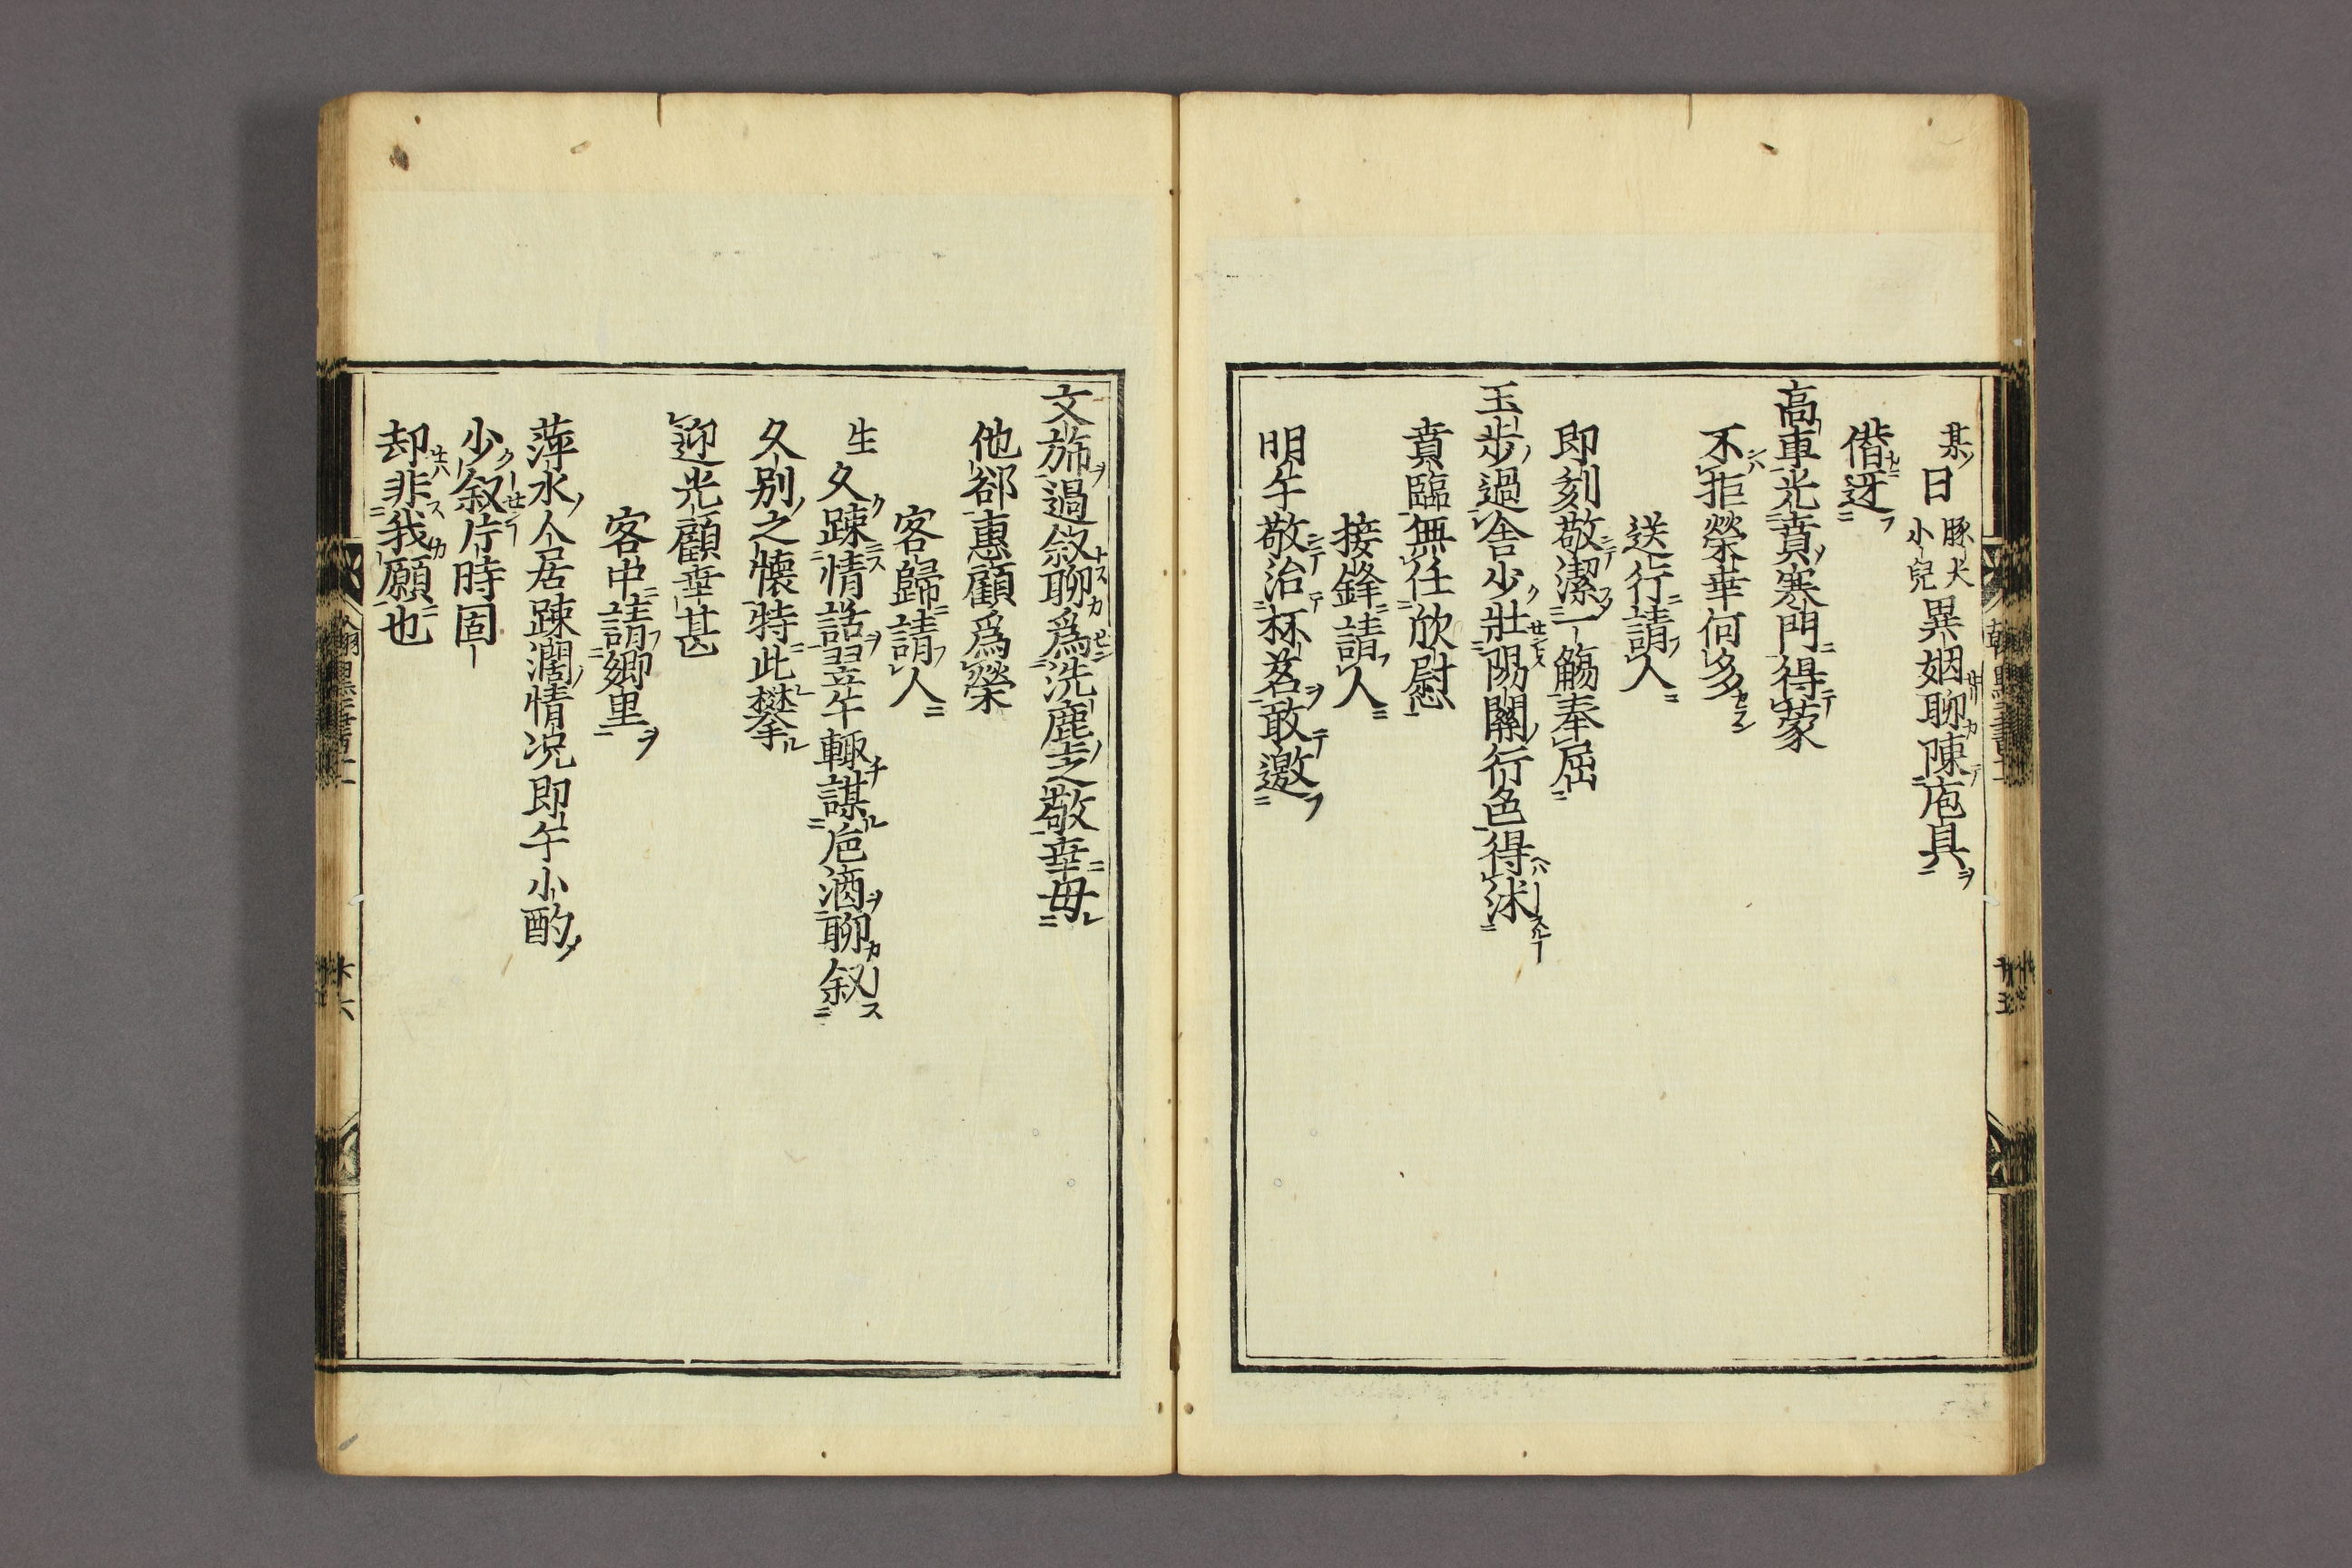 某日豚犬小兒異姻聊陳庖具
偕迓
高車光賁寒門得蒙
不拒榮華何多
送行請人
即刻敬潔一觴奉屈
玉步過舍少壯陽關行色得沐
賁臨無任欣慰
接鋒請人
明午敬治杯茗敢邀
文旆過叙聊爲洗塵之敬幸毋
他郤惠顧爲榮
客歸請人
生久踈情話翌午輙謀巵酒聊叙
久別之懷特此攀
迎光顧幸甚
客中請鄉里
萍水人居踈濶情况即午小酌
少叙片時固
却非我願也